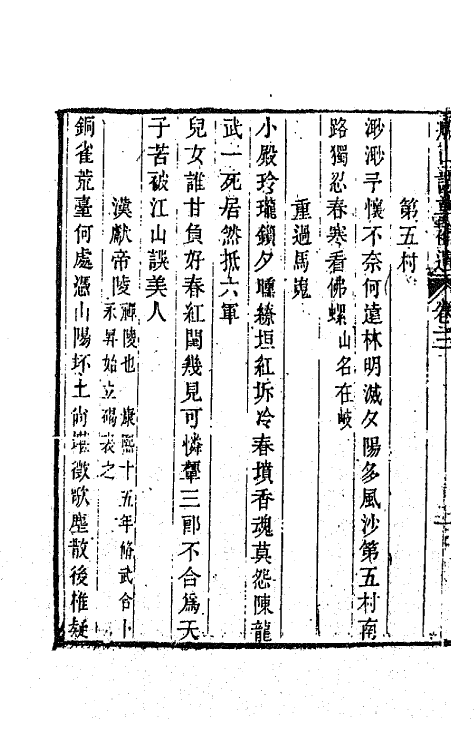 第五村
渺渺予懷不奈何遠林明滅夕陽多風沙第五村南
路獨忍春寒看佛螺山名在岐
重過馬嵬
小殿玲瓏鎖夕曛繚垣紅坼冷春墳香魂莫怨陳龍
武一死居然抵六軍
兒女誰甘負好春紅閨幾見可憐顰三郎不合為天
子苦破江山誤美人
漢獻帝陵禪陵也康熙十五年脩武令卜
永昇始立碣表之
銅雀荒臺何處憑山陽抔土尚堪徵歌塵散後椎疑